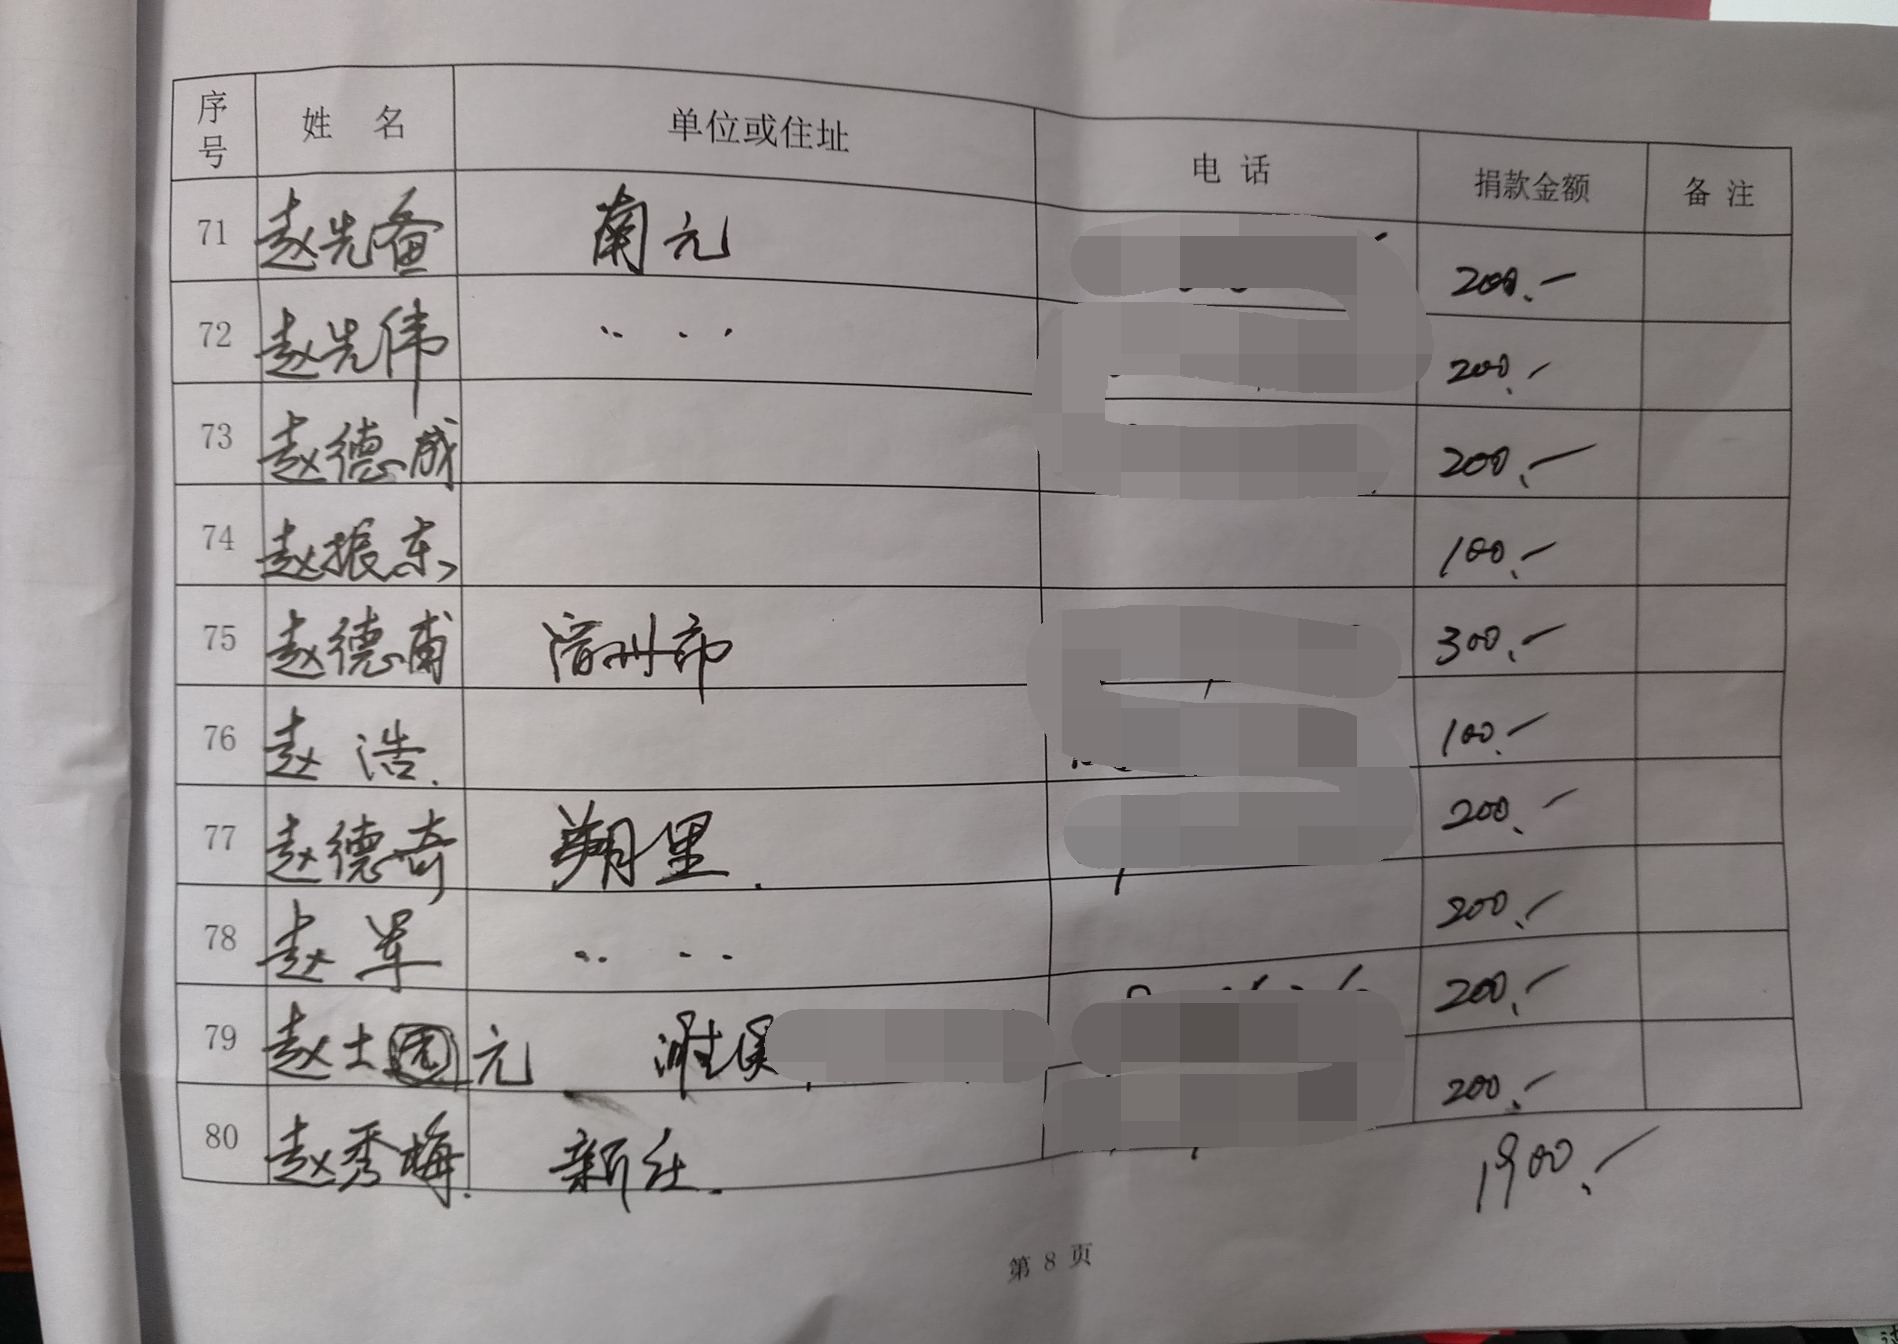 序号 姓名 单位或住址 电话 捐款金额 备注
71 赵先备 南元 200.-
72 赵先伟 〃 〃 200.-
73 赵德成 200.-
74 赵振东 100.-
75 赵德甫 宿州市 300.-
76 赵浩. 100.-
77 赵德奇 翔里. 200.-
78 赵军 〃 〃 200.-
79 赵士元 200.-
80 赵秀梅. 新庄. 200.-
1900.-
第 8 页